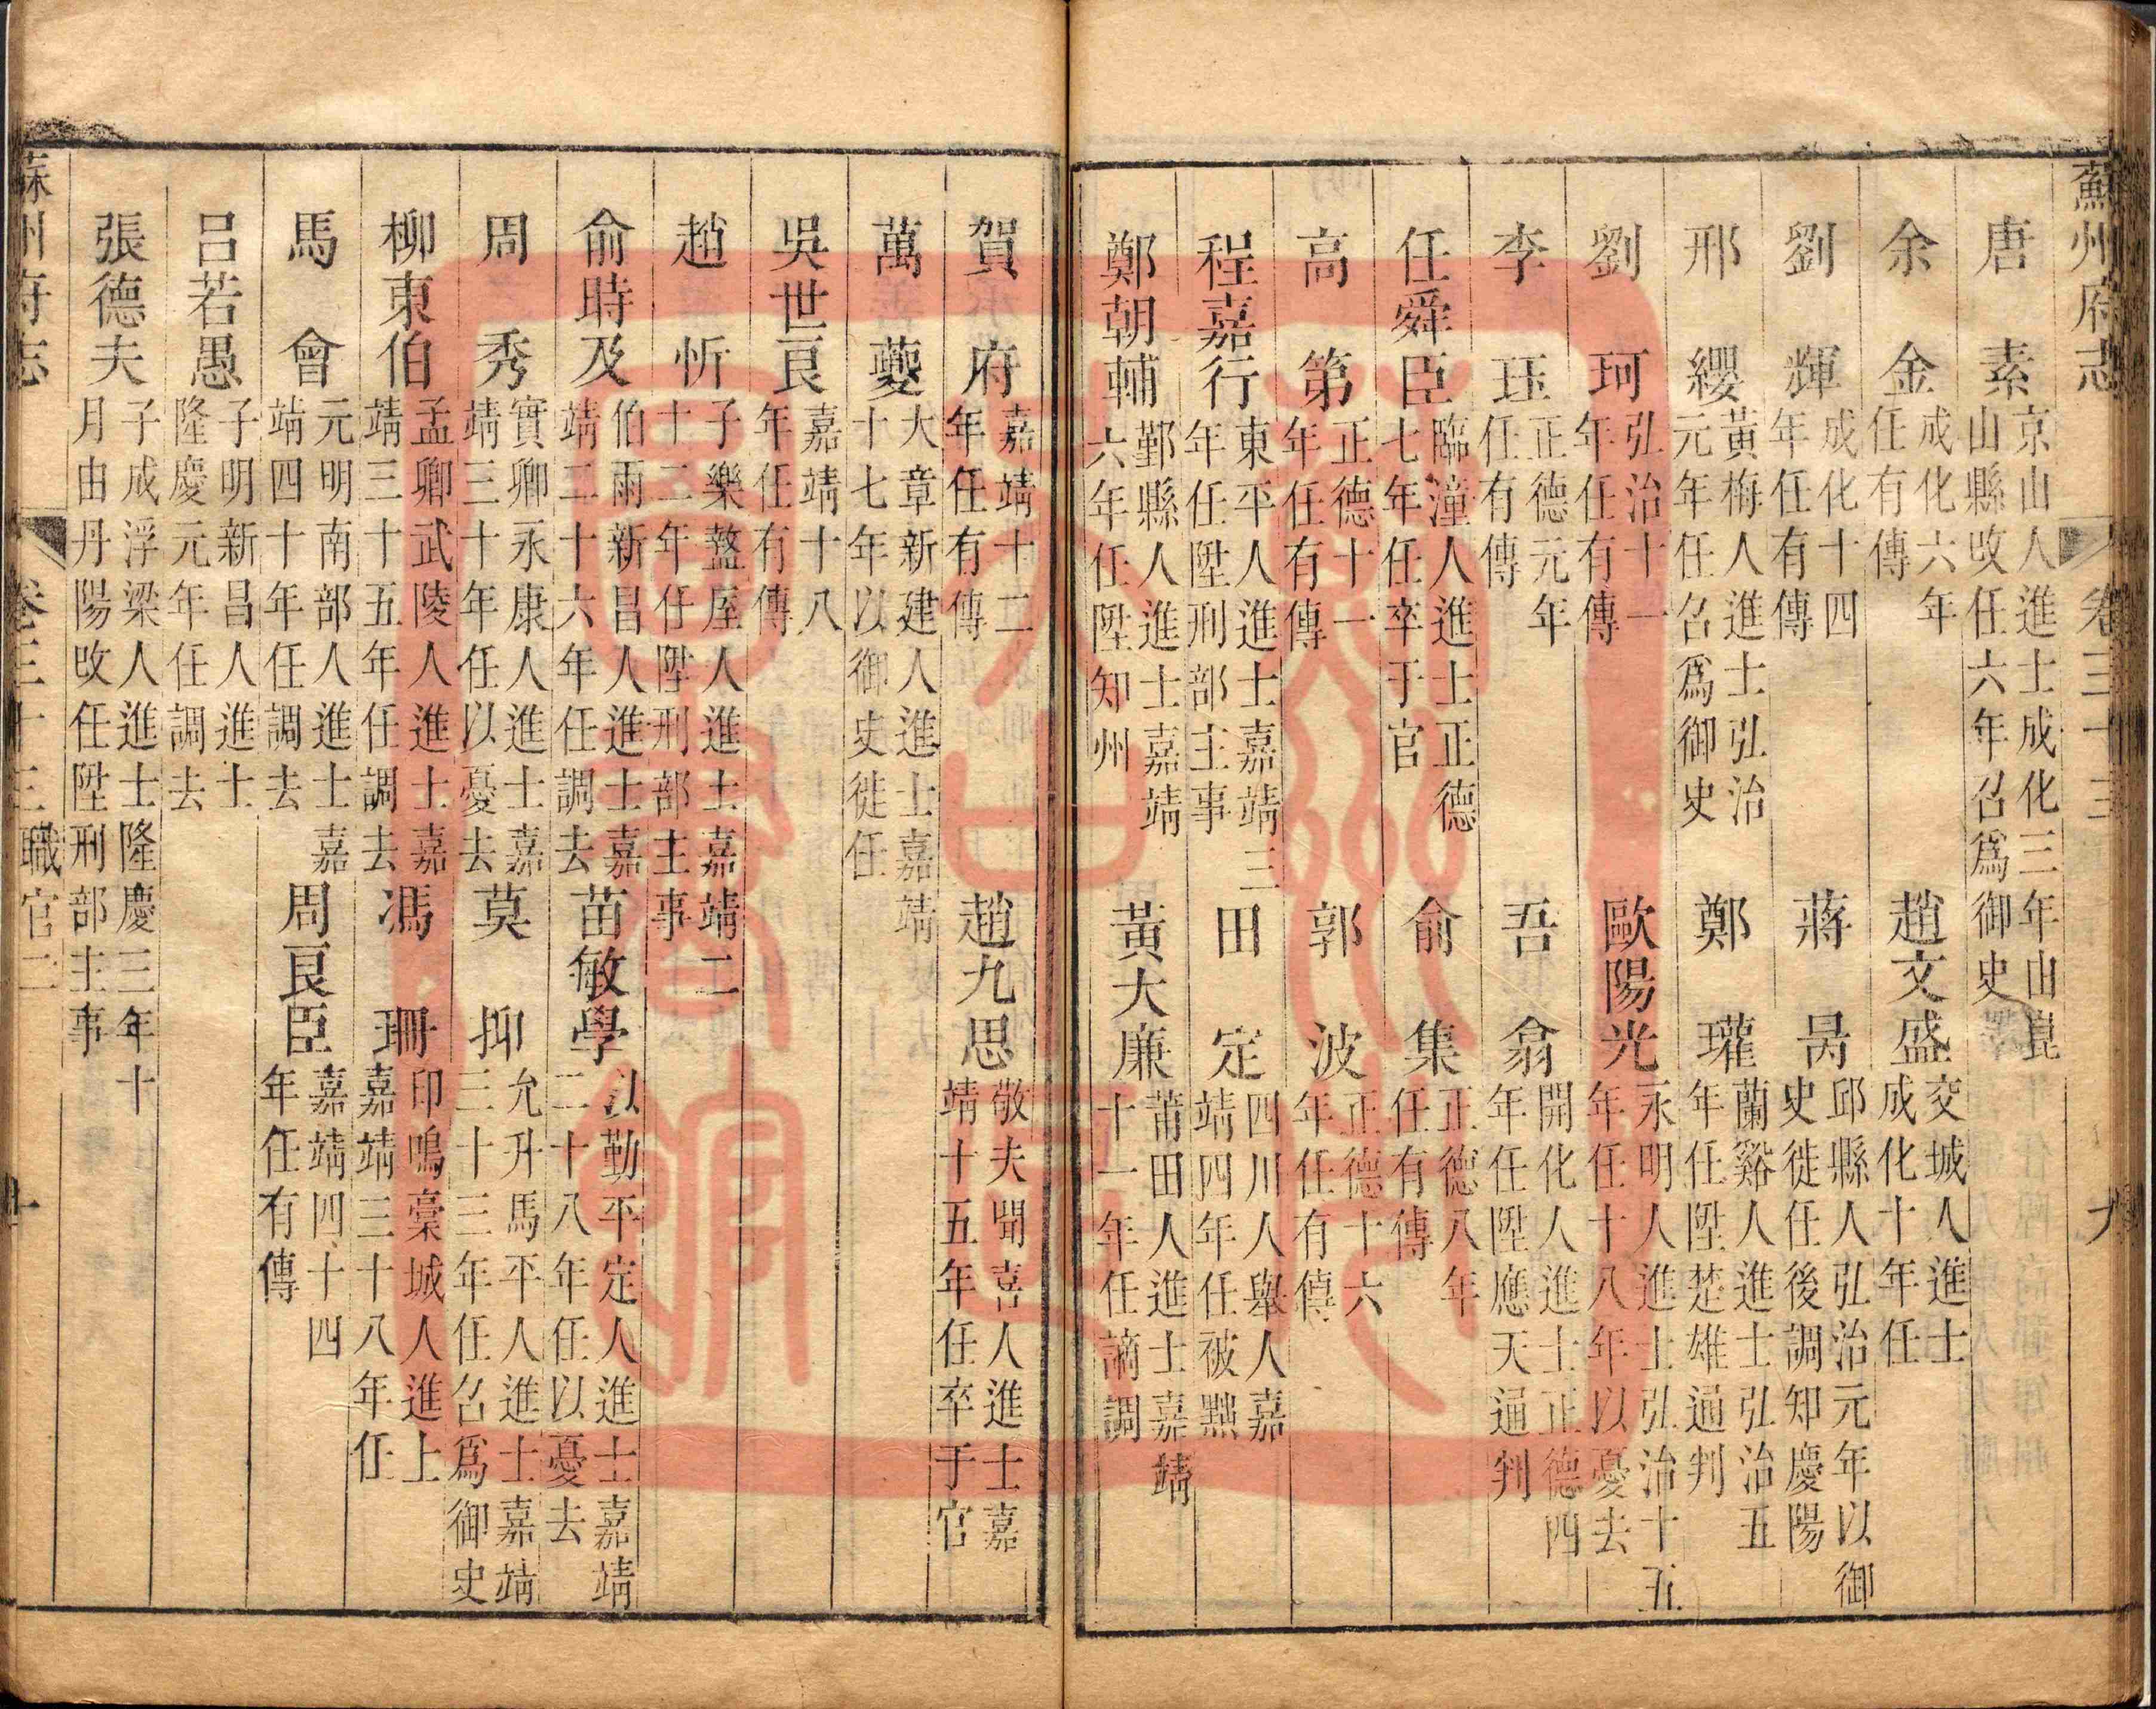 蘇州府志 卷三十三 九
唐素
京山人進士成化三年由崑
山縣改任六年召爲御史
余金
成化六年
任有傳
趙文盛
交城人進士
成化十年任
劉輝
成化十四
年任有傳
蔣昺
邱縣人弘治元年以御
史徙任後調知慶陽
邢纓
黃梅人進士弘治
元年任召爲御史
鄭瓘
蘭谿人進士弘治五
年任陞楚雄通判
劉珂
弘治十一
年任有傳
歐陽光
永明人進士弘治十五
年任十八年以憂去
李珏
正德元年
任有傳
吾翕
開化人進士正德四
年任陞應天通判
任舜臣
臨潼人進士正德
七年任卒于官
俞集
正德八年
任有傳
高第
正德十一
年任有傳
郭波
正德十六
年任有傳
程嘉行
東平人進士嘉靖三
年任陞刑部主事
田定
四川人舉人嘉
靖四年任被黜
鄭朝輔
鄞縣人進士嘉靖
六年任陞知州
黃大廉
莆田人進士嘉靖
十一年任謫調
賀府
嘉靖十二
年任有傳
趙九思
敬夫聞喜人進士嘉
靖十五年任卒于官
萬夔
大章新建人進士嘉靖
十七年以御史徙任
吳世良
嘉靖十八
年任有傳
趙忻
子樂盩厔人進士嘉靖二
十二年任陞刑部主事
俞時及
伯雨新昌人進士嘉
靖二十六年任調去
苗敏學
以勤平定人進士嘉靖
二十八年任以憂去
周秀
實卿永康人進士嘉
靖三十年任以憂去
莫抑
允升馬平人進士嘉靖
三十三年任召爲御史
柳東伯
孟卿武陵人進士嘉
靖三十五年任調去
馮珊
印鳴藁城人進士
嘉靖三十八年任
馬會
元明南部人進士嘉
靖四十年任調去
周良臣
嘉靖四十四
年任有傳
呂若愚
子明新昌人進士
隆慶元年任調去
張德夫
子成浮梁人進士隆慶三年十
月由丹陽改任陞刑部主事
蘇州府志 卷三十三 職官二 十